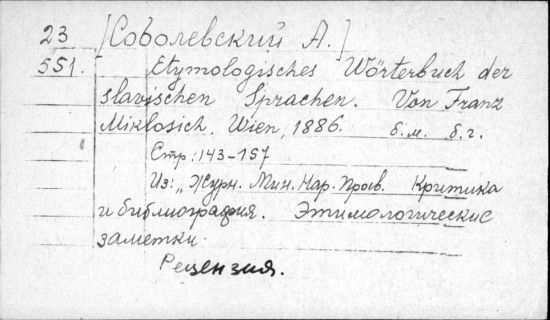 23 [Соболевский А.]
551. Etymologisches Wörterbuch der
slavischen Sprachen. Von Franz
Miklosich. Wien, 1886. б.м. б.г.
Стр.: 143-157
Из: „Журн. Мин. Нар. Просв. Критика
и библиография. Этимологические
заметки.
Рецензия.